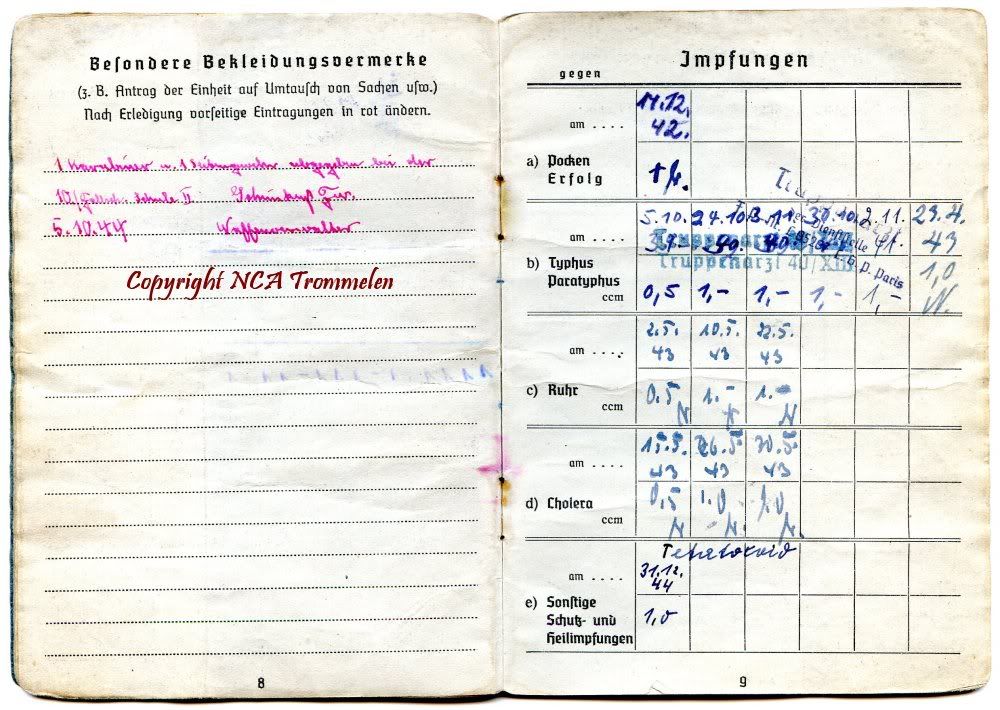 Besondere Bekleidungsvermerke
(z. B. Antrag der Einheit auf Umtausch von Sachen usw.)
Nach Erledigung vorseitige Eintragungen in rot ändern.
1 Karabiner u. 1 abgegeben bei der
10/ Schule II
5.10.44 Waffenverwalter
Copyright NCA Trommelen
8
Impfungen
gegen
am .... 11.12. 42.
a) Pocken
Erfolg
5.10. 24.10 30.10 2.11. 23.4.
am .... 43
Truppenarzt 40/XIII
L.G.P. Paris
b) Typhus
Paratyphus
ccm 0,5 1,- 1,- 1,- 1,- 1,0
2.5. 10.5. 22.5.
am .... 43 43 43
c) Ruhr
ccm 0.5 1.- 1.-
15.5. 26.5. 30.5.
am .... 43 43 43
d) Cholera
ccm 0,5 1.0 1.0
am .... 31.12. 44
e) Sonstige
Schutz- und
Heilimpfungen 1,0
9